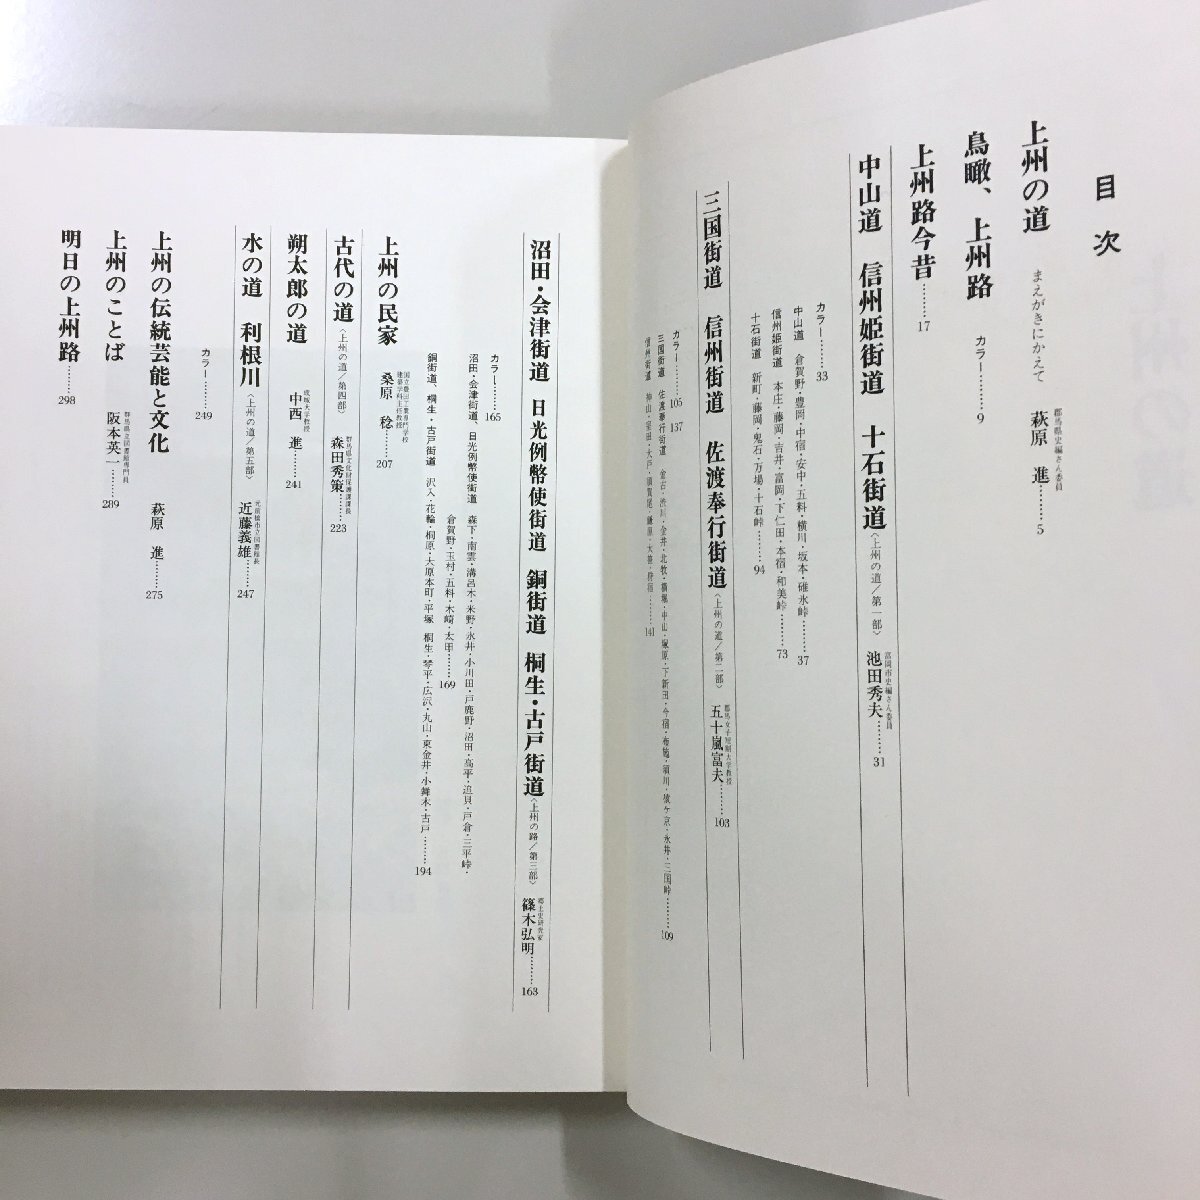 目次
上州の道 まえがきにかえて 群馬県史編さん委員 萩原 進………5
鳥瞰、上州路 カラー………9
上州路今昔………17
中山道 信州姫街道 十石街道〈上州の道／第一部〉 富岡市史編さん委員 池田秀夫………31
カラー………33
中山道 倉賀野・豊岡・中宿・安中・五料・横川・坂本・碓氷峠………37
信州姫街道 本庄・藤岡・吉井・富岡・下仁田・本宿・和美峠………73
十石街道 新町・藤岡・鬼石・万場・十石峠………94
三国街道 信州街道 佐渡奉行街道〈上州の道／第二部〉 群馬女子短期大学教授 五十嵐富夫………103
カラー………105 137
三国街道 佐渡奉行街道 金古・渋川・金井・北牧・横堀・中山・塚原・下新田・今宿・布施・須川・猿ヶ京・永井・三国峠………109
信州街道 神山・室田・大戸・須賀尾・鎌原・大笹・狩宿………141
沼田・会津街道 日光例幣使街道 銅街道 桐生・古戸街道〈上州の路／第三部〉 郷土史研究家 篠木弘明………163
カラー………165
沼田・会津街道、日光例幣使街道 森下・南雲・溝呂木・米野・永井・小川田・戸鹿野・沼田・高平・追貝・戸倉・三平峠・
倉賀野・玉村・五料・木崎・太田………169
銅街道、桐生・古戸街道 沢入・花輪・桐原・大原本町・平塚 桐生・琴平・広沢・丸山・東金井・小舞木・古戸………194
上州の民家 国立豊田工業専門学校建築学科主任教授 桑原 稔………207
古代の道〈上州の道／第四部〉 群馬県文化財保護課課長 森田秀策………223
朔太郎の道 成城大学教授 中西 進………241
水の道 利根川〈上州の道／第五部〉 元前橋市立図書館長 近藤義雄………247
カラー………249
上州の伝統芸能と文化 萩原 進………275
上州のことば 群馬県立図書館専門員 阪本英一………289
明日の上州路………298